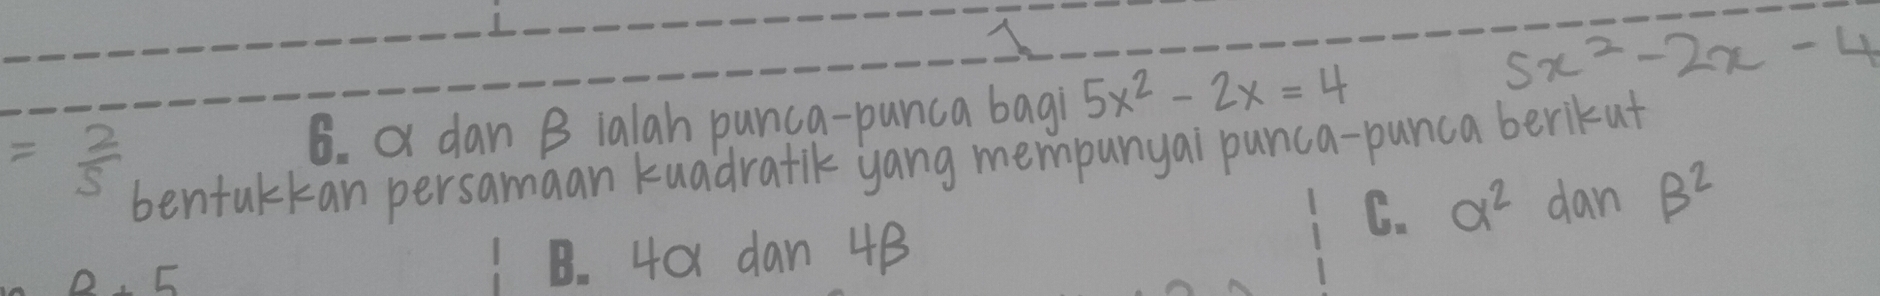 5x² - 2x - 4
= 2/5
6. α dan β ialah punca-punca bagi 5x² - 2x = 4
bentukkan persamaan kuadratik yang mempunyai punca-punca berikut
B. 4α dan 4β
C. α² dan β²
β + 5